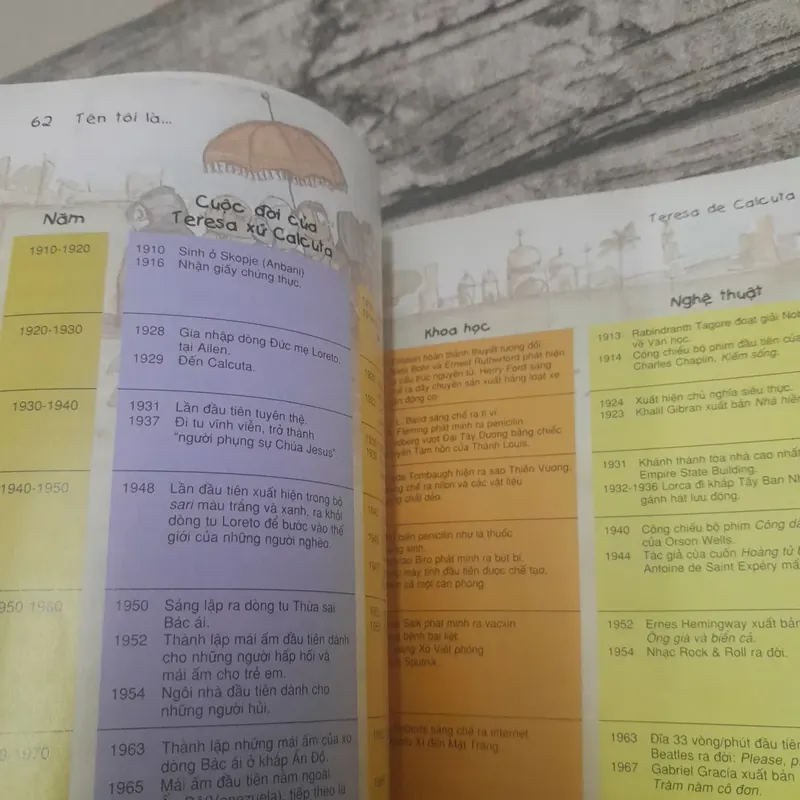 62 Tên tôi là...
Năm
Cuộc đời của
Teresa xứ Calcuta
1910-1920
1910 Sinh ở Skopje (Anbani)
1916 Nhận giấy chứng thực.
1920-1930
1928 Gia nhập dòng Đức mẹ Loreto,
tại Ailen.
1929 Đến Calcuta.
1930-1940
1931 Lần đầu tiên tuyên thệ.
1937 Đi tu vĩnh viễn, trở thành
"người phụng sự Chúa Jesus"
1940-1950
1948 Lần đầu tiên xuất hiện trong bộ
sari màu trắng và xanh, ra khỏi
dòng tu Loreto để bước vào thế
giới của những người nghèo.
950-1960
1950 Sáng lập ra dòng tu Thừa sai
Bác ái.
1952 Thành lập mái ấm đầu tiên dành
cho những người hấp hối và
mái ấm cho trẻ em.
1954 Ngôi nhà đầu tiên dành cho
những người hủi.
1963 Thành lập những mái ấm của xơ
dòng Bác ái ở khắp Ấn Độ.
1965 Mái ấm đầu tiên nằm ngoài
(Venezuela); tiếp theo là
Teresa de Calcuta
Khoa học
hoàn thành thuyết tương đối
Bohr và Ernest Rutherford phát hiện
cấu trúc nguyên tử. Herry Ford sáng
ra dây chuyền sản xuất hàng loạt xe
động cơ
L. Baird sáng chế ra ti vi
Fleming phát minh ra penicilin
vượt Đại Tây Dương bằng chiếc
Tâm hồn của Thánh Louis.
Tombaugh hiện ra sao Thiên Vương.
chế ra nilon và các vật liệu
chất dẻo.
biến penicilin như là thuốc
sinh.
Biro phát minh ra bút bi.
máy tính đầu tiên được chế tạo,
cả một căn phòng.
Salk phát minh ra vacxin
bệnh bại liệt.
Xô Viết phóng
Sputnik.
sáng chế ra internet
đến Mặt Trăng.
Nghệ thuật
1913 Rabindranth Tagore đoạt giải
về Văn học.
1914 Công chiếu bộ phim đầu tiên của
Charles Chaplin, Kiếm sống.
1924 Xuất hiện chủ nghĩa siêu thực.
1923 Khalil Gibran xuất bản Nhà
1931 Khánh thành tòa nhà cao nhất
Empire State Building.
1932-1936 Lorca đi khắp Tây Ban
gánh hát lưu động.
1940 Công chiếu bộ phim Công
của Orson Wells.
1944 Tác giả của cuốn Hoàng tử
Antoine de Saint Expéry
1952 Ernes Hemingway xuất bản
Ông già và biển cả.
1954 Nhạc Rock & Roll ra đời.
1963 Đĩa 33 vòng/phút đầu tiên
Beatles ra đời: Please,
1967 Gabriel Gracía xuất bản
Trăm năm cô đơn.